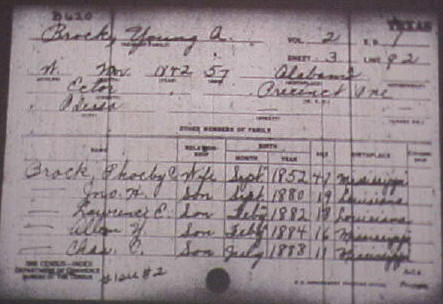 B620
TEXAS
Brock, Young A. VOL. 2 E.D. 1
SHEET 3 LINE 92
W. Mar. 1842 57 Alabama
Ector Precinct One
Odessa
OTHER MEMBERS OF FAMILY
NAME RELATIONSHIP BIRTH MONTH YEAR AGE BIRTHPLACE
Brock, Phoeby C. Wife Sept. 1852 47 Mississippi
— Jno. H. Son Sept. 1880 19 Louisiana
— Lawrence E. Son Feby 1882 18 Louisiana
— Son Feby 1884 16 Mississippi
— Chas. C. Son July 1888 11 Mississippi
1900 CENSUS—INDEX
DEPARTMENT OF COMMERCE
BUREAU OF THE CENSUS